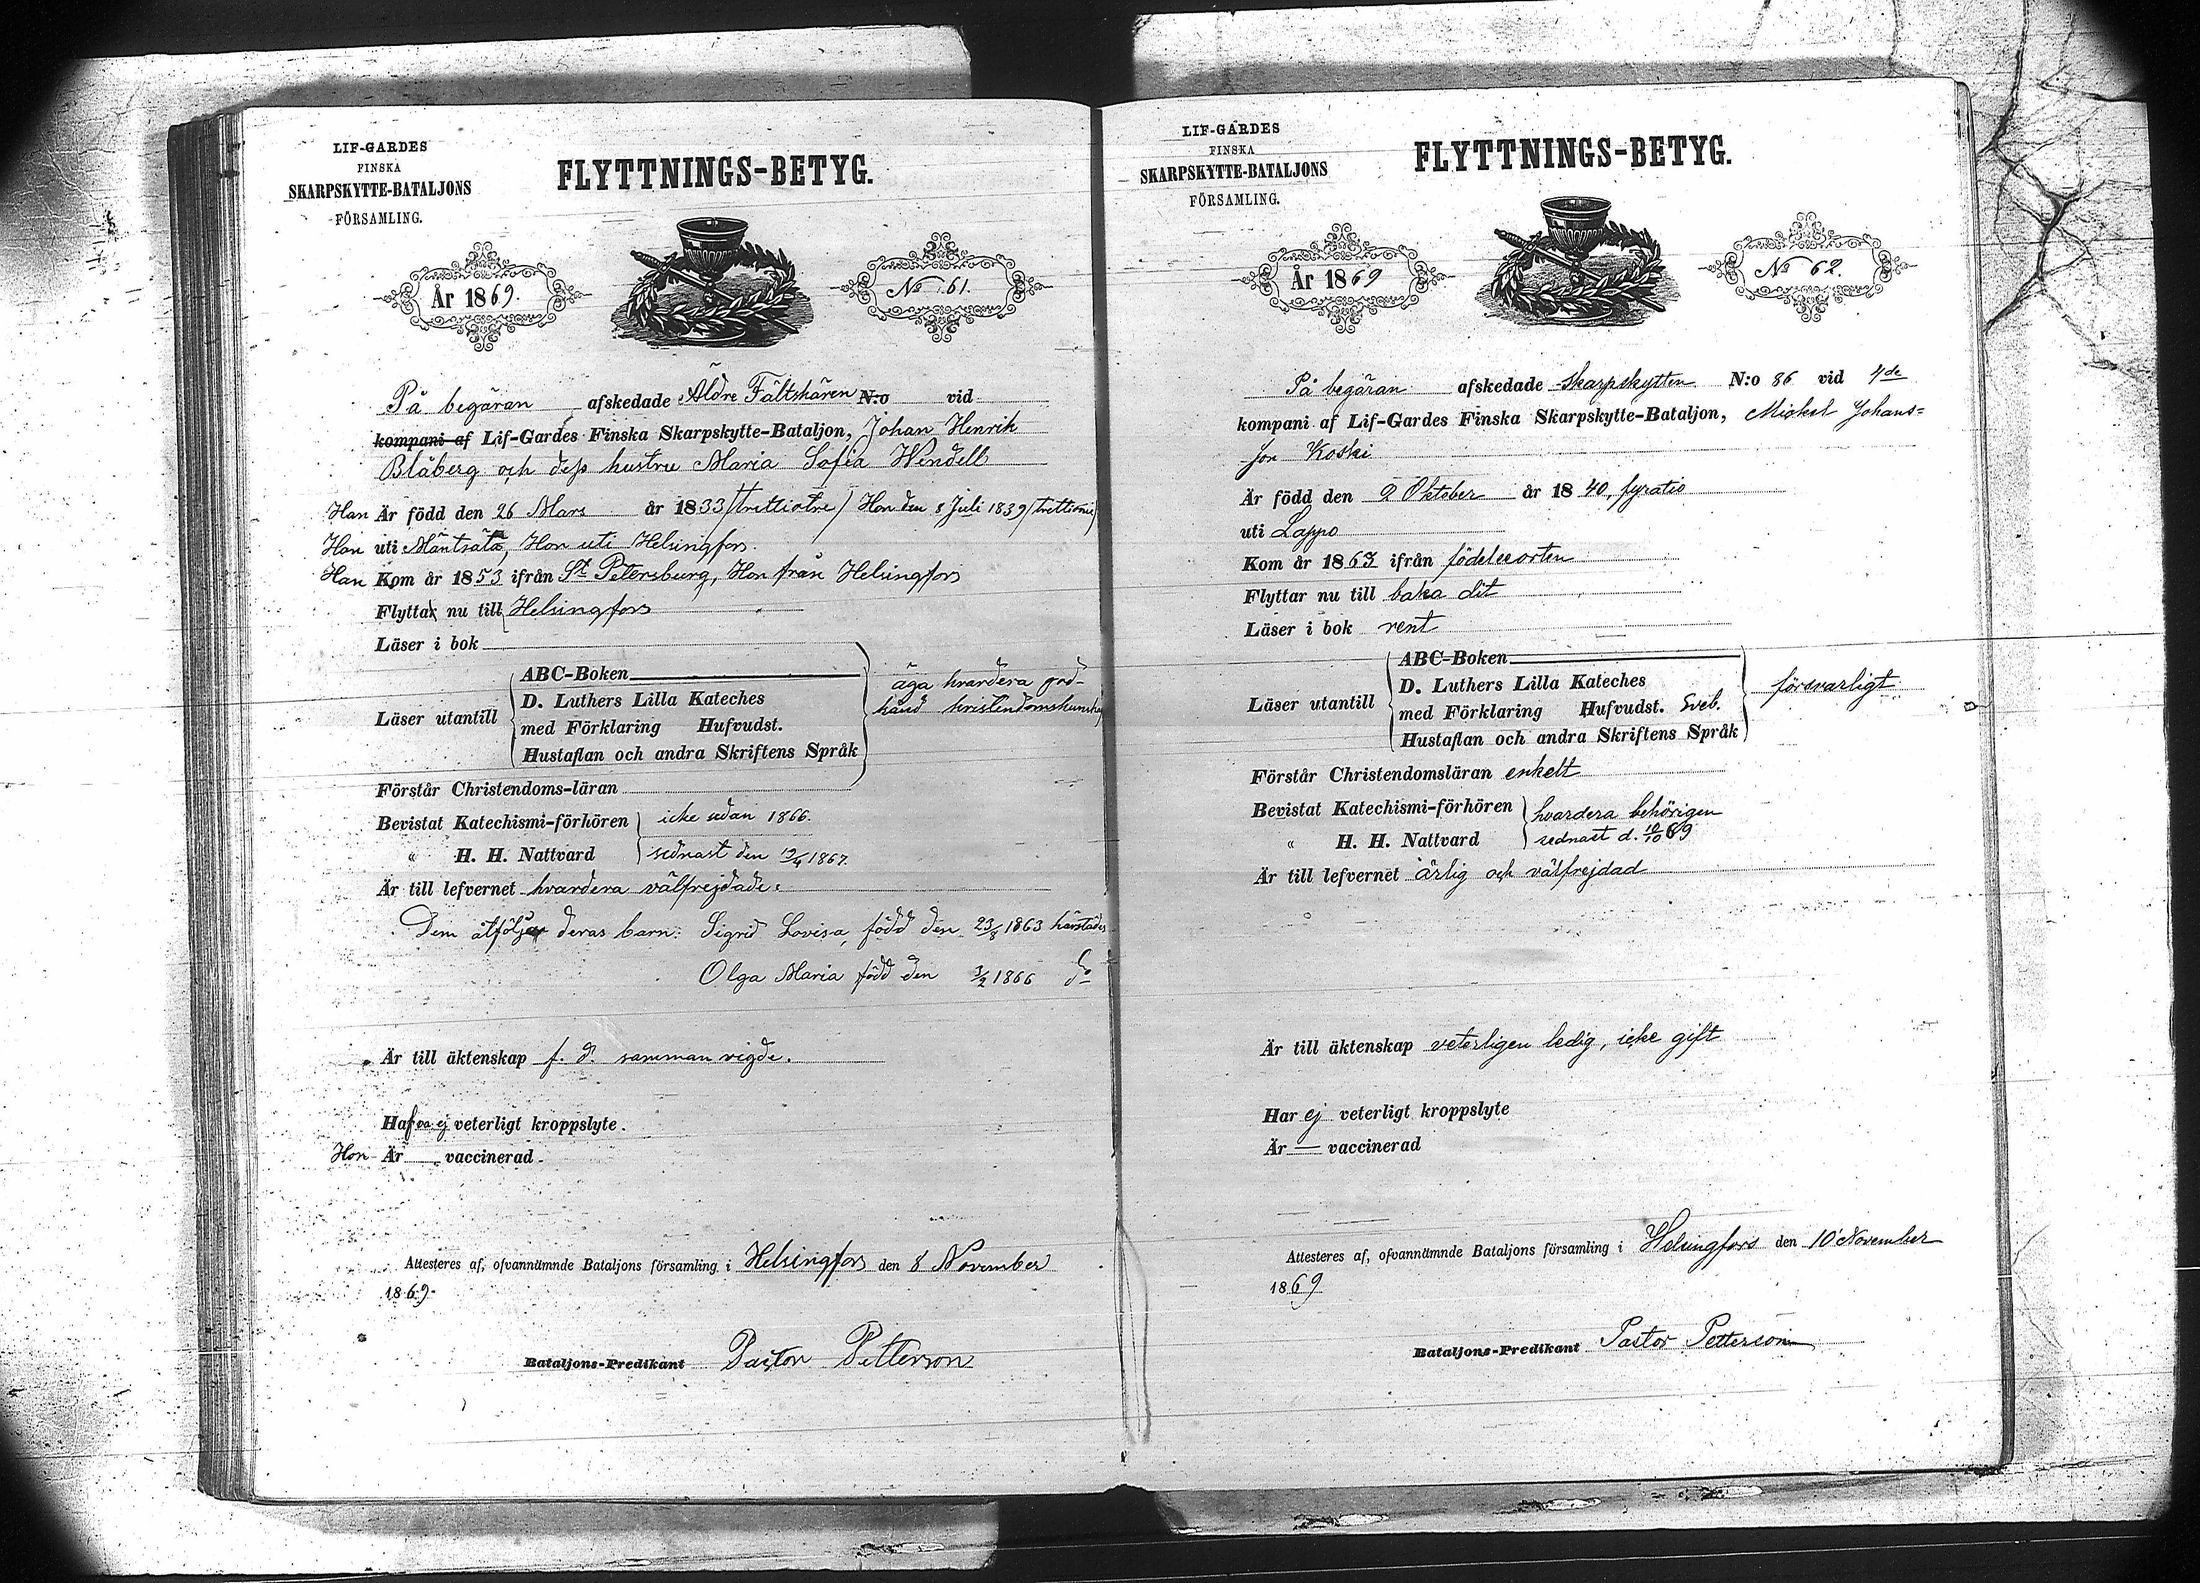 LIF-GARDES
FINSKA
SKARPSKYTTE-BATALJONS
FÖRSAMLING.
FLYTTNINGS-BETYG.
År 1869.
No 61.
På begäran afskedade Äldre Fältskären N:o vid
kompani af Lif-Gardes Finska Skarpskytte-Bataljon, Johan Henrik
Blåberg och dess hustru Maria Sofia Wendell
Han Är född den 26 Mars år 1833 /trettiotre/ Hon den 8 Juli 1839 /trettionie/
Han uti Mäntsälä, Hon uti Helsingfors.
Han Kom år 1853 ifrån St Petersburg, Hon från Helsingfors
Flytta nu till Helsingfors
Läser i bok
Läser utantill
ABC-Boken
D. Luthers Lilla Kateches
med Förklaring Hufvudst.
Hustaflan och andra Skriftens Språk
äga hvardera god-
känd kristendomskunskap
Förstår Christendoms-läran
Bevistat Katechismi-förhören icke sedan 1866.
" H. H. Nattvard sednast den 19/4 1867.
Är till lefvernet hvardera välfrejdade.
Dem åtfölja deras barn: Sigrid Lovisa, född den 23/8 1863 härstädes
Olga Maria född den 3/2 1866 do
Är till äktenskap f. d. sammanvigde.
Hafva ej veterligt kroppslyte.
Hon Är — vaccinerad.
Attesteres af, ofvannämnde Bataljons församling i Helsingfors den 8 November
1869.
Bataljons-Predikant Pastor Petterson
LIF-GARDES
FINSKA
SKARPSKYTTE-BATALJONS
FÖRSAMLING.
FLYTTNINGS-BETYG.
År 1869
No 62.
På begäran afskedade Skarpskytten N:o 86 vid 4de
kompani af Lif-Gardes Finska Skarpskytte-Bataljon, Mickel Johans=
son Koski
Är född den 2 Oktober år 1840, fyratio
uti Lappo
Kom år 1863 ifrån födelseorten
Flyttar nu till baka dit
Läser i bok rent
Läser utantill
ABC-Boken
D. Luthers Lilla Kateches
med Förklaring Hufvudst. Sveb.
Hustaflan och andra Skriftens Språk
försvarligt
Förstår Christendomsläran enkelt
Bevistat Katechismi-förhören hvardera behörigen
" H. H. Nattvard sednast d. 10/10 69
Är till lefvernet ärlig och välfrejdad
Är till äktenskap veterligen ledig, icke gift
Har ej veterligt kroppslyte
Är — vaccinerad
Attesteres af, ofvannämnde Bataljons församling i Helsingfors den 10 November
1869
Bataljons-Predikant Pastor Petterson